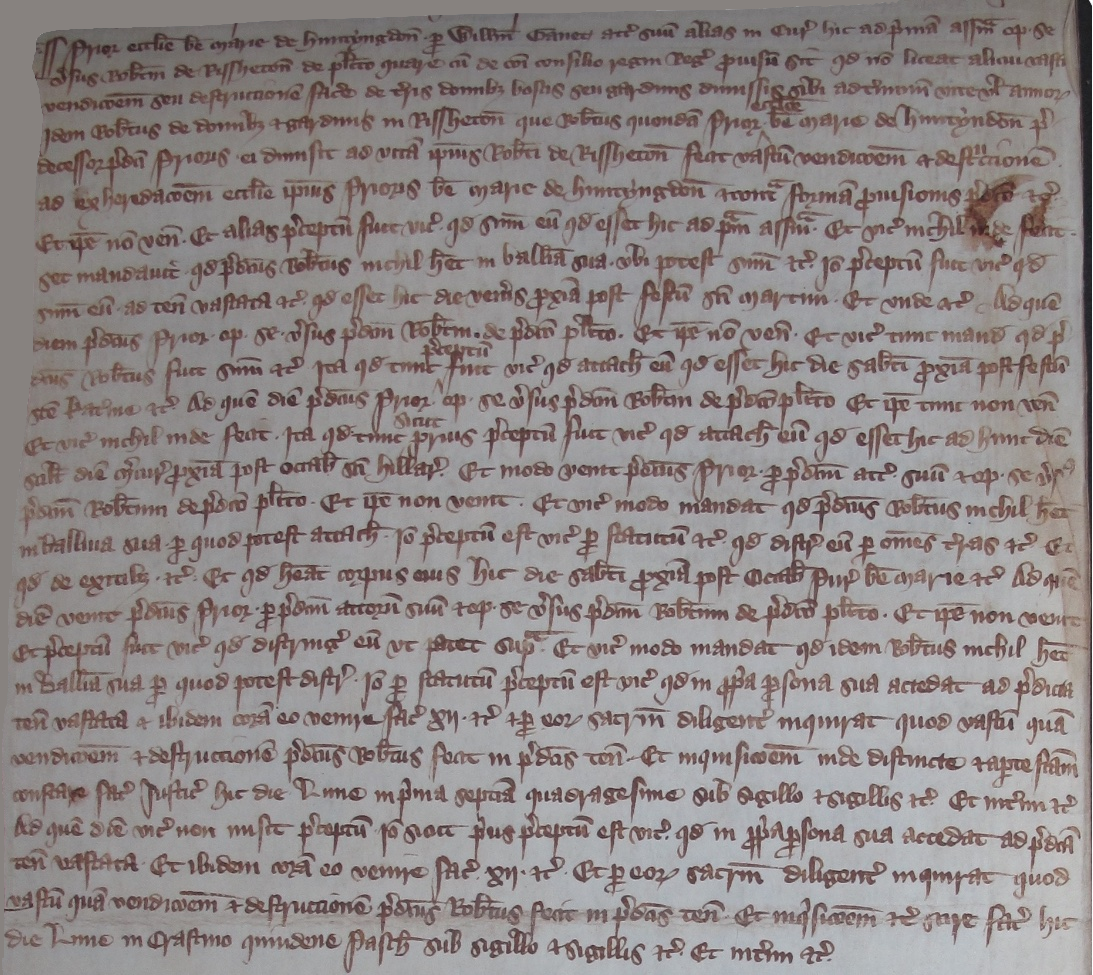 Prior eccl̄ie bē marie de huntyngdon̄ · ꝑ Willm̄ Gauet att̄ suū alias in Cur̄ hic ad p̄mā assm̄ op̄ · se
v̄sus Rob̄tm de Risshetoñ de pl̄ito quare cū de cōi consilio regni Reg̃ ꝓuisū sit qd nō liceat alicui vastū
vendicōem seu destruccionē facẽ de t̄ris domibꝫ boscis seu gardinis dimissis sibi ad t̄minū vite vl̄ annoꝝ
Idem Rob̄tus de domibꝫ ⁊ gardinis in Risshetoñ que Rob̄tus quondā Prior eccl̄ie bē marie de huntyndoñ p̄
decessor p̄dc̄i Prioris · ei dimisit ad vitā ip̄ius Rob̄ti de Risshetoñ fecit vastū vendicōem ⁊ destruccionē ·
ad exheredacōem eccl̄ie ip̄ius Prioris bē marie de huntyngdoñ ⁊ contᵃ formā ꝓuisionis p̄dc̄e ⁊c̃
Et ip̄e nō veñ · Et alias p̄ceptū fuit vic̃ · qd sum̄ eū qd esset hic ad p̄m̄ assm̄ · Et vic̃ nichil inde fecit ·
set mandauit qd p̄dc̄us Rob̄tus nichil h̄et in ballīa sua · vbi potest sum̄ ⁊c̃ · Iō p̄ceptū fuit vic̃ qd
sum̄ eū · ad teñ vastata ⁊c̃ · qd esset hic die ven̄is ꝓxīa post festū sc̄i martini · Et vnde ⁊c̃ · Ad quē
diem p̄dc̄us Prior · op̄ · se · v̄sus p̄dc̄m Rob̄tm · de p̄dc̄o pl̄ito · Et ip̄e nō veñ · Et vic̃ tunc mand̄ qd p̄
dc̄us Rob̄tus fuit sum̄ ⁊c̃ Ita qd tunc p̄ceptū fuit vic̃ qd attach̄ eū qd esset hic die sab̄ti ꝓxīa post festū
sc̄e Kat̄ine ⁊c̃ Ad quē diē p̄dc̄us Prior op̄ · se v̄sus p̄dc̄m Rob̄tm de p̄dc̄o pl̄ito Et ip̄e tunc non veñ
Et vic̃ nichil inde fecit · Ita qd · tunc sicut prius p̄ceptū fuit vic̃ qd attach̄ eū qd esset hic ad hunc diē
scil̄t diē m̄cur̄ ꝓxīa post octab̄ sc̄i hillar̄ · Et modo venit p̄dc̄us Prior · ꝑ p̄dc̄m att̄ · suū ⁊ op̄ · se v̄sus
p̄dc̄m Rob̄tum de p̄dc̄o pl̄ito · Et ip̄e non venit · Et vic̃ modo mandat qd p̄dc̄us Rob̄tus nichil h̄et
in balliua sua · ꝑ quod potest attach̄ · Iō p̄ceptū est vic̃ ꝑ statutū ⁊c̃ · qd distr̄ eū ꝑ om̄es t̄ras ⁊c̃ · Et
qd de exitibꝫ · ⁊c̃ · Et qd h̄eat corpus eius hic die sab̄ti ꝓxīa post Octab̄ Pur̄ bē marie ⁊c̃ Ad quē
diē venit p̄dc̄us Prior · ꝑ p̄dc̄m attorñ suū ⁊ op̄ · se v̄sus p̄dc̄m Rob̄tum de p̄dc̄o pl̄ito · Et ip̄e non venit
Et p̄ceptū fuit vic̃ qd distring̃ eū vt patet sup̄ᵃ · Et vic̃ modo mandat qd idem Rob̄tus nichil h̄et
in ballīa sua ꝑ quod potest distr̄ · Iō ꝑ statutū p̄ceptū est vic̃ qd in ꝓp̄a ꝑsona sua accedat ad p̄dicta
teñ vastata ⁊ ibidem corā eo venire fac̃ xij · ⁊c̃ ⁊ ꝑ eoꝝ sacr̄m diligent̄ inquirat quod vastū quā
vendicōem ⁊ destruccionē p̄dc̄us Rob̄tus fecit in p̄dc̄is teñ · Et inquisicōem inde distincte ⁊ aꝑte fc̄am
constare fac̃ Justic̃ hic die Lune in p̄ma septīa quadragesime sub sigillo ⁊ sigillis ⁊c̃ Et int̄im ⁊c̃
Ad quē diē vic̃ non misit p̄ceptū · Iō sicut p̄us p̄ceptū est vic̃ · qd in ꝓp̄a ꝑsona sua accedat ad p̄dc̄a
teñ vastata · Et ibidem corā eo venire fac̃ · xij · ⁊c̃ · Et ꝑ eoꝝ sacr̄m diligent̄ inquirat quod
vastū quā vendicōem ⁊ destruccionē p̄dc̄us Rob̄tus fecit in p̄dc̄is teñ · Et inq̄isicōem ⁊c̃ scire fac̃ hic
die Lune in Crastino quindene Pasch̄ sub sigillo ⁊ sigillis ⁊c̃ · Et int̄im ⁊c̃